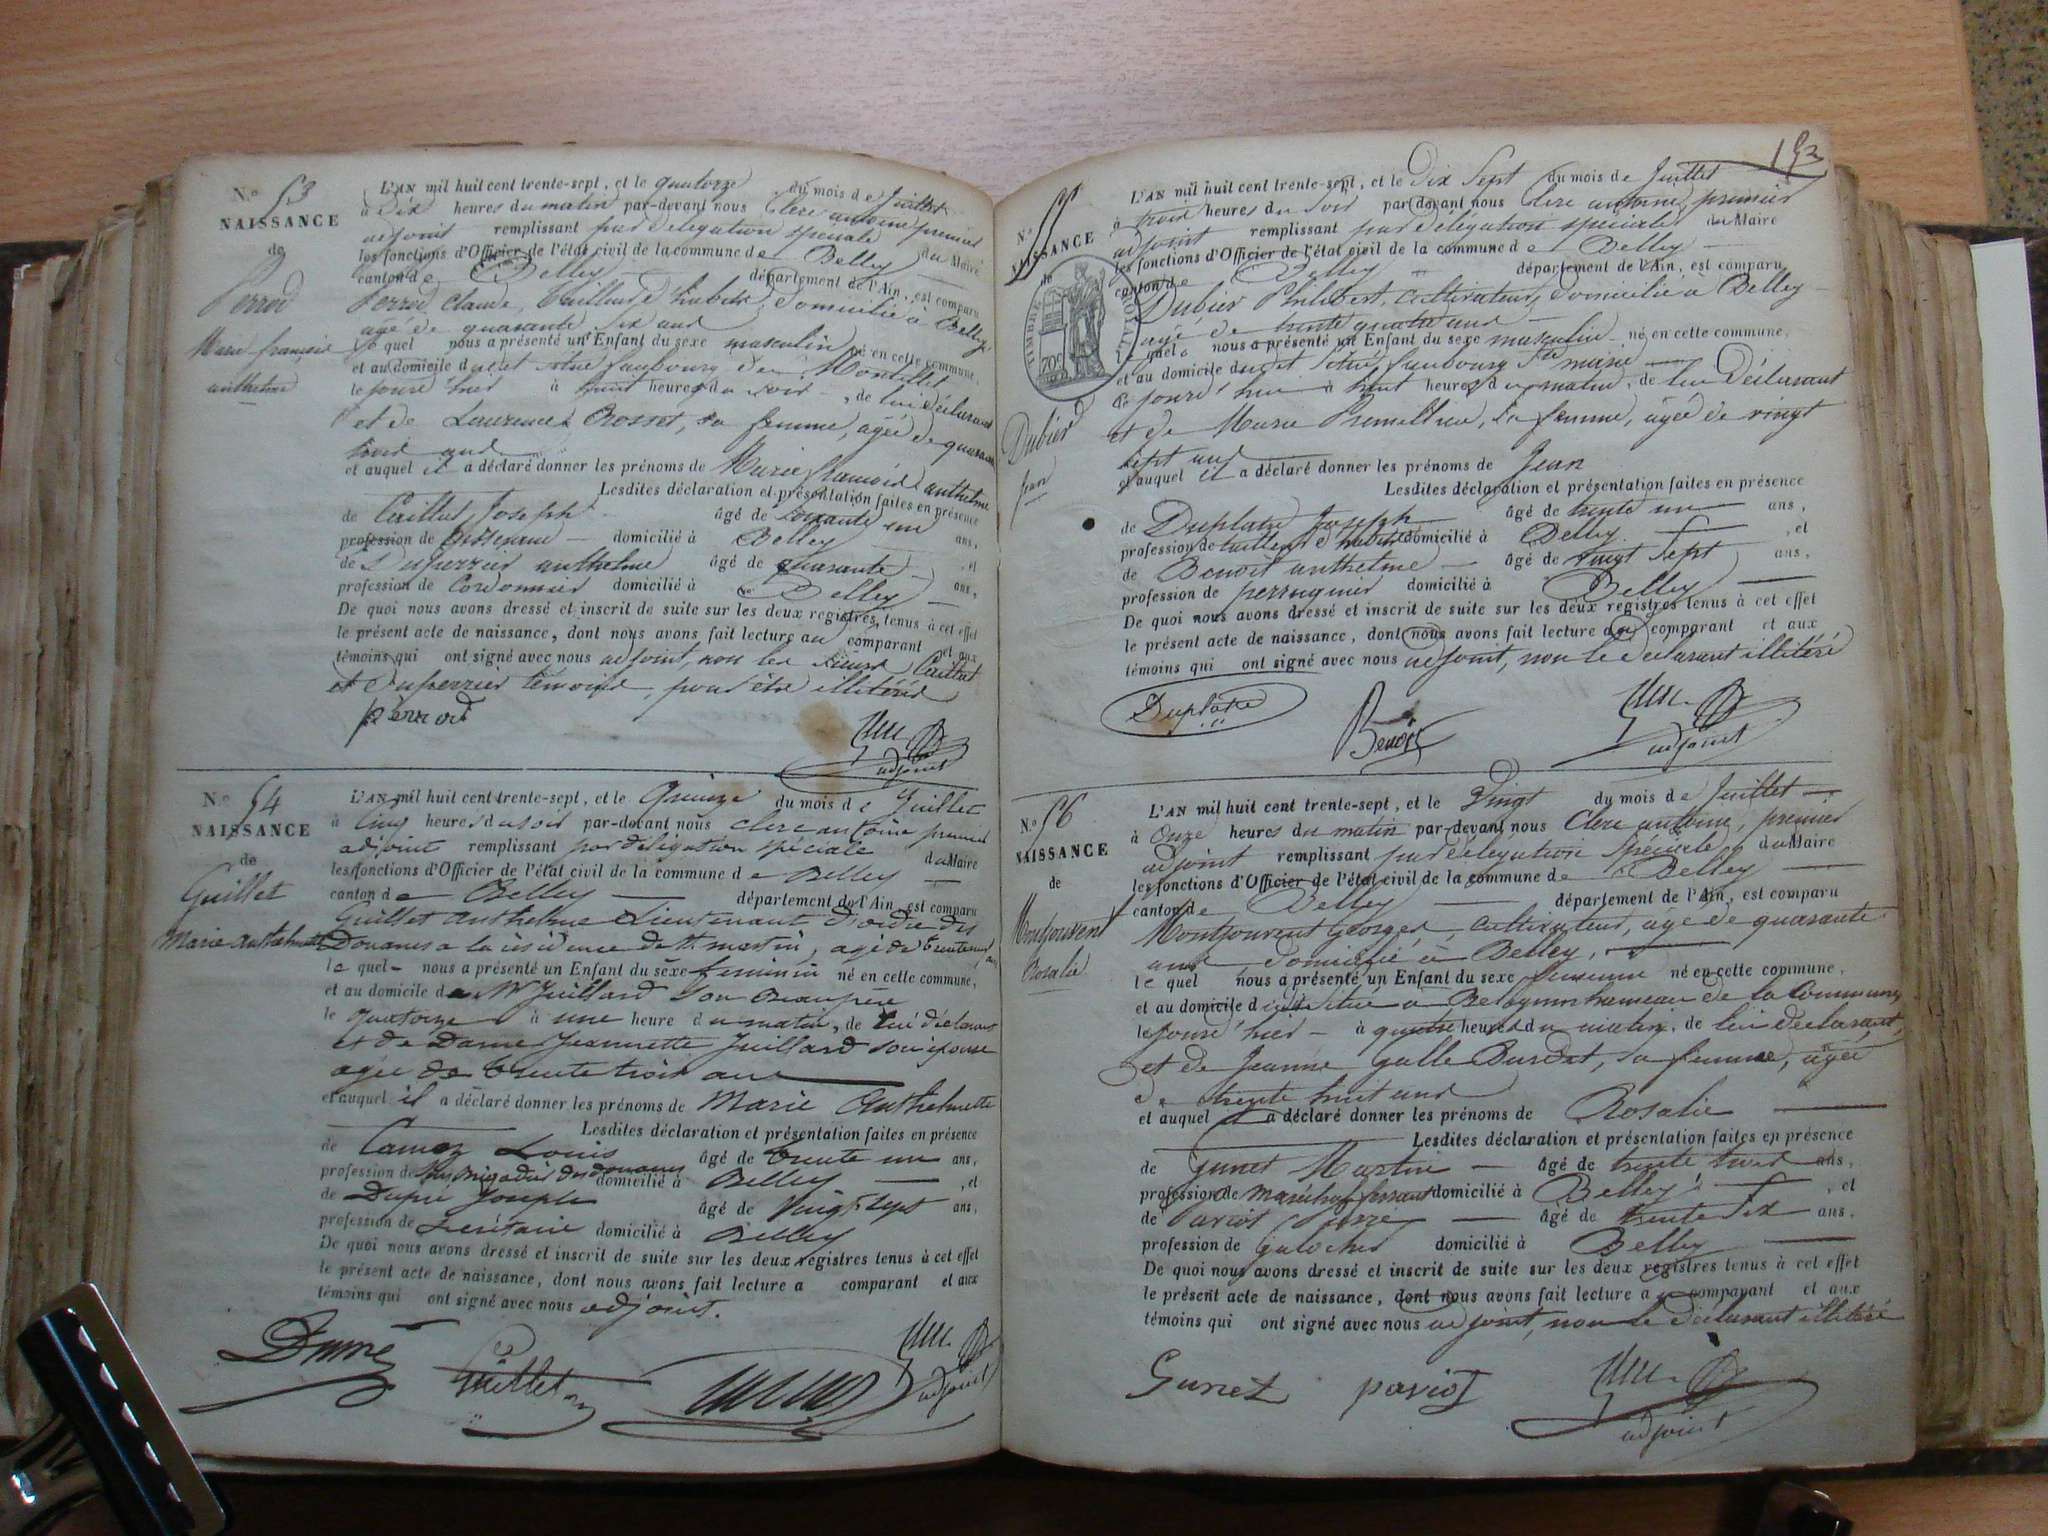 N.º 53
NAISSANCE
de
Perrod
Marie françoise
anthelme
L'AN mil huit cent trente-sept, et le quatorze du mois de Juillet
à Dix heures du matin par-devant nous Clerc antoine premier
adjoint remplissant par délégation spéciale du Maire
les fonctions d'Officier de l'état civil de la commune de Belley
canton de Belley département de l'Ain, est comparu
Perrod Claude, tailleur d'habits, domicilié à Belley
agé de quarante six ans
le quel nous a présenté un Enfant du sexe masculin né en cette commune,
et au domicile dudit situé faubourg de
le jourd'hier à huit heures du soir, de lui déclarant
et de Laurence Crosset, sa femme, agée de quarante
trois ans
et auquel il a déclaré donner les prénoms de Marie françoise anthelme
Lesdites déclaration et présentation faites en présence
de Caillat Joseph âgé de soixante un ans,
profession de domicilié à Belley, et
de Duperrier anthelme âgé de quarante ans,
profession de Cordonnier domicilié à Belley
De quoi nous avons dressé et inscrit de suite sur les deux registres tenus à cet effet
le présent acte de naissance, dont nous avons fait lecture au comparant et aux
témoins qui ont signé avec nous adjoint, non les sieurs Caillat
et Duperrier témoins, pour être illitérés
perrod
adjoint
N.º 54
NAISSANCE
de
Guillet
Marie anthelmette
L'AN mil huit cent trente-sept, et le Quinze du mois de Juillet
à Cinq heures du soir par-devant nous clerc antoine premier
adjoint remplissant par délégation spéciale du Maire
les fonctions d'Officier de l'état civil de la commune de Belley
canton de Belley département de l'Ain, est comparu
Guillet Anthelme Lieutenant d'ordre des
Douanes a la résidence de St martin, agé de trente
le quel nous a présenté un Enfant du sexe feminin né en cette commune,
et au domicile de Mr Juillard son Beaupère
le quatorze à une heure du matin, de lui déclarant
et de Dame Jeannette Juillard son épouse
agée de trente trois ans
et auquel il a déclaré donner les prénoms de Marie Anthelmette
Lesdites déclaration et présentation faites en présence
de Louis âgé de trente un ans,
profession de brigadier des douanes domicilié à Belley, et
de Dupré Joseph âgé de vingt sept ans,
profession de Secrétaire domicilié à Belley
De quoi nous avons dressé et inscrit de suite sur les deux registres tenus à cet effet
le présent acte de naissance, dont nous avons fait lecture a comparant et aux
témoins qui ont signé avec nous adjoint.
Dupré Guillet
adjoint
N.º 55
NAISSANCE
de
TIMBRE ROYAL
70c
Dubier
jean
L'AN mil huit cent trente-sept, et le Dix Sept du mois de Juillet
à trois heures du soir par devant nous Clerc antoine, premier
adjoint remplissant par délégation spéciale du Maire
les fonctions d'Officier de l'état civil de la commune de Belley
canton de Belley département de l'Ain, est comparu
Dubier Philibert, cultivateur, domicilié à Belley
agé de trente quatre ans
le quel nous a présenté un Enfant du sexe masculin né en cette commune,
et au domicile dudit situé faubourg Ste marie
le jourd'hui à huit heures du matin, de lui Déclarant
et de Marie Premillieu, sa femme, agée de vingt
sept ans
et auquel il a déclaré donner les prénoms de Jean
Lesdites déclaration et présentation faites en présence
de Duplatre Joseph âgé de trente un ans,
profession de tailleur d'habits domicilié à Belley, et
de Benoit anthelme âgé de vingt Sept ans,
profession de perruquier domicilié à Belley
De quoi nous avons dressé et inscrit de suite sur les deux registres tenus à cet effet
le présent acte de naissance, dont nous avons fait lecture au comparant et aux
témoins qui ont signé avec nous adjoint, non le déclarant illitéré
Duplatre Benoit
adjoint
152
N.º 56
NAISSANCE
de
Montjouvent
Rosalie
L'AN mil huit cent trente-sept, et le Vingt du mois de Juillet
à Onze heures du matin par-devant nous Clerc antoine, premier
adjoint remplissant par délégation spéciale du Maire
les fonctions d'Officier de l'état civil de la commune de Belley
canton de Belley département de l'Ain, est comparu
Montjouvent Georges, cultivateur, âgé de quarante
ans domicilié à Belley,
le quel nous a présenté un Enfant du sexe feminin né en cette commune,
et au domicile dudit situé a hameau de la Commune
le jourd'hier à quatre heures du matin, de lui déclarant,
et de Jeanne Galle Burdet, sa femme, agée
de trente huit ans
et auquel il a déclaré donner les prénoms de Rosalie
Lesdites déclaration et présentation faites en présence
de Gunet Martin âgé de trente trois ans,
profession de maréchal ferrant domicilié à Belley, et
de Paviot Pierre âgé de trente Six ans,
profession de Galocher domicilié à Belley
De quoi nous avons dressé et inscrit de suite sur les deux registres tenus à cet effet
le présent acte de naissance, dont nous avons fait lecture au comparant et aux
témoins qui ont signé avec nous adjoint, non le déclarant illitéré
Gunet paviot
adjoint